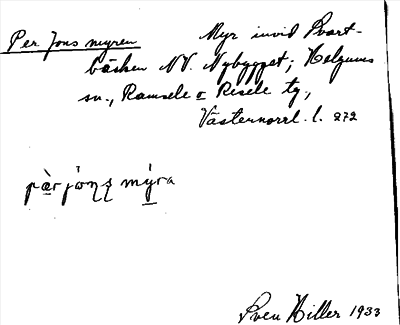 Per Jons myren Myr invid Svart-
bäcken NV. Nybygget; Helgums
sn., Ramsele o Resele tg,
Västernorrl. l. 272
pær jòns mýra
Sven Hiller 1933